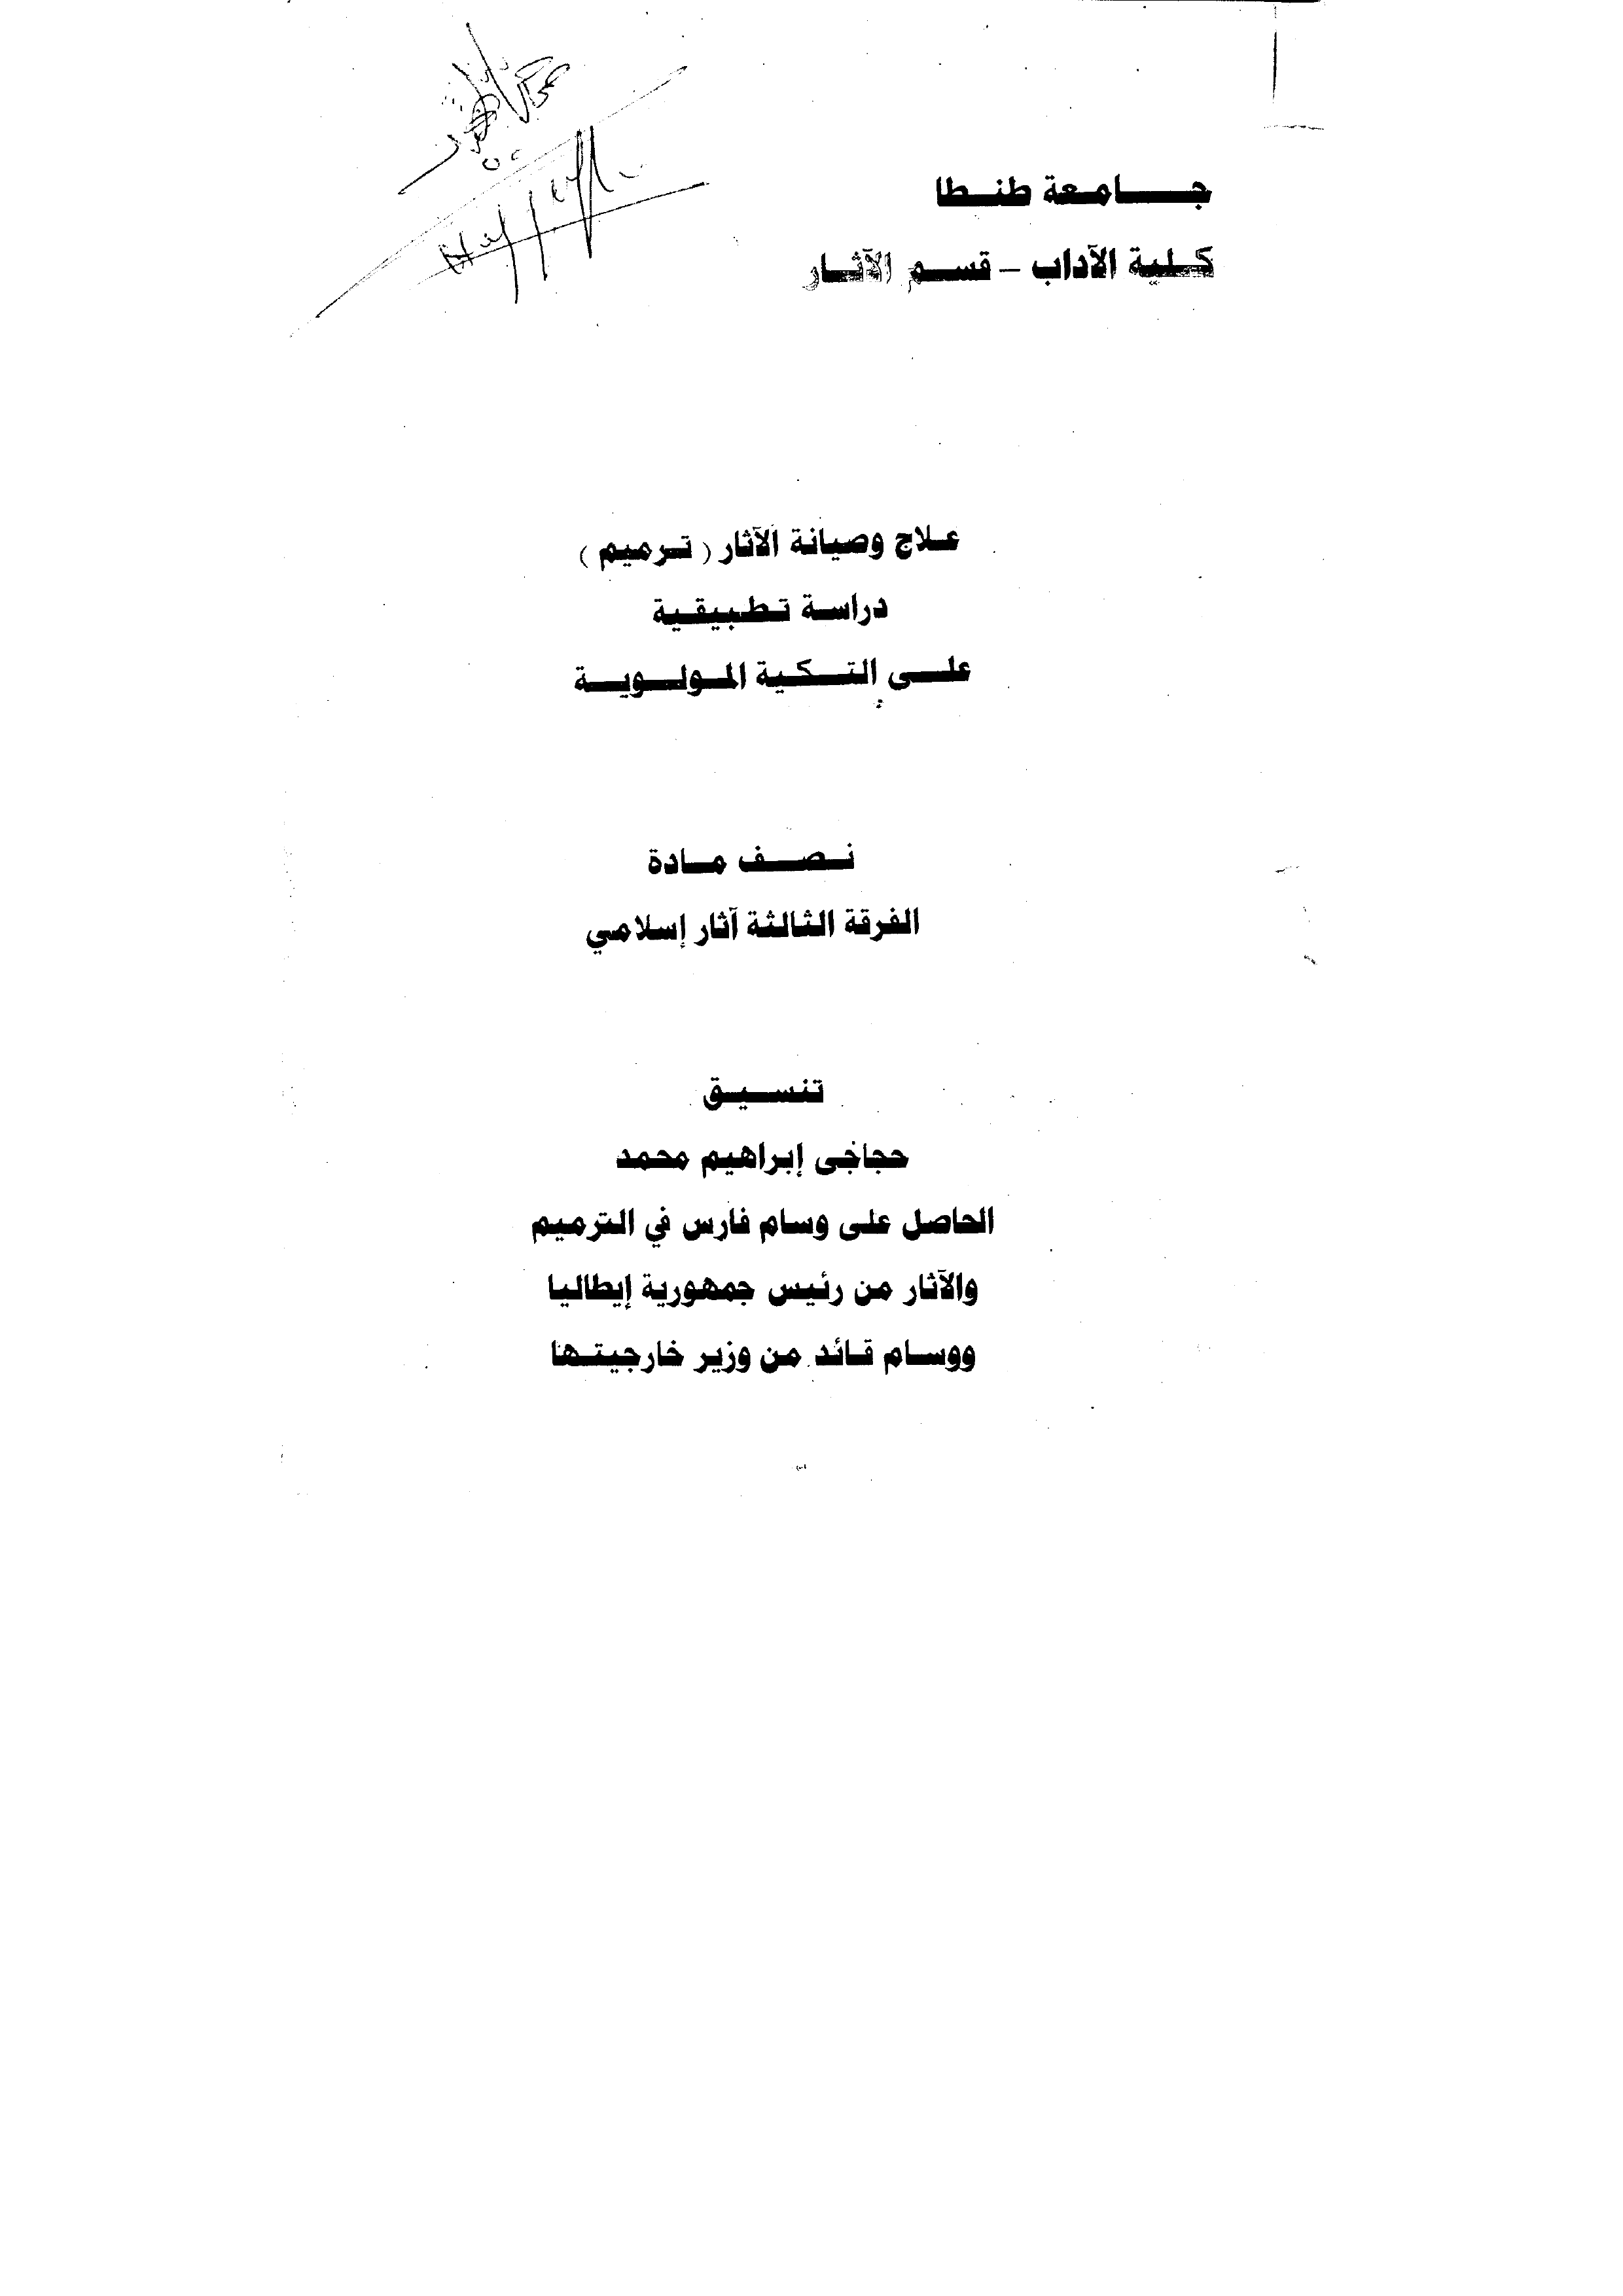 جامعة طنطا
كلية الآداب – قسم الآثار
علاج وصيانة الآثار ( ترميم )
دراسة تطبيقية
على التكية المولوية
نصف مادة
الفرقة الثالثة آثار إسلامي
تنسيق
حجاجى إبراهيم محمد
الحاصل على وسام فارس في الترميم
والآثار من رئيس جمهورية إيطاليا
ووسام قائد من وزير خارجيتها